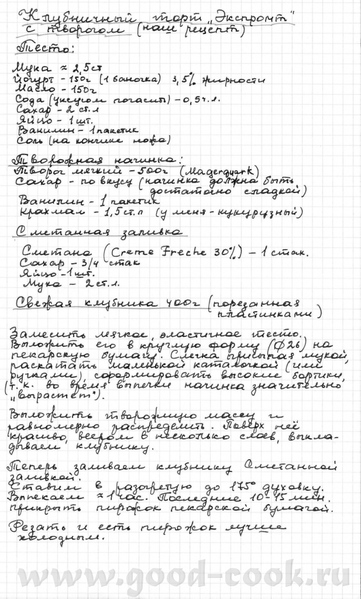 Клубничный торт „Экспромт"
с творогом (наш рецепт)
Тесто:
Мука ≈ 2,5 ст
Йогурт – 150г (1 баночка) 3,5% жирности
Масло – 150г
Сода (уксусом погасить) – 0,5 ч.л.
Сахар – 2 ст.л
Яйцо – 1 шт.
Ванилин – 1 пакетик
Соль (на кончике ножа)
Творожная начинка:
Творог мягкий – 500г (Magerquark)
Сахар – по вкусу (начинка должна быть
достаточно сладкой)
Ванилин – 1 пакетик
Крахмал – 1,5 ст.л (у меня – кукурузный)
Сметанная заливка
Сметана (Creme Freche 30%) – 1 стак.
Сахар – 3/4 стак
Яйцо – 1 шт.
Мука – 2 ст.л.
Свежая клубника 400г (порезанная
пластинками)
Замесить мягкое, эластичное тесто.
Выложить его в круглую форму (Ø26) на
пекарскую бумагу. Слегка присыпая мукой,
раскатать маленькой каталочкой (или
ручками), сформировать высокие бортики,
(т.к. во время выпечки начинка значительно
„вырастет").
Выложить творожную массу и
равномерно распределить. Поверх неё
красиво, веером в несколько слоёв, выкла-
дываем клубнику.
Теперь заливаем клубнику сметанной
заливкой.
Ставим в разогретую до 175° духовку.
Выпекаем ≈ 1 час. Последние 10-15 мин.
прикрыть пирожок пекарской бумагой.
Резать и есть пирожок лучше
холодным.
www.good-cook.ru